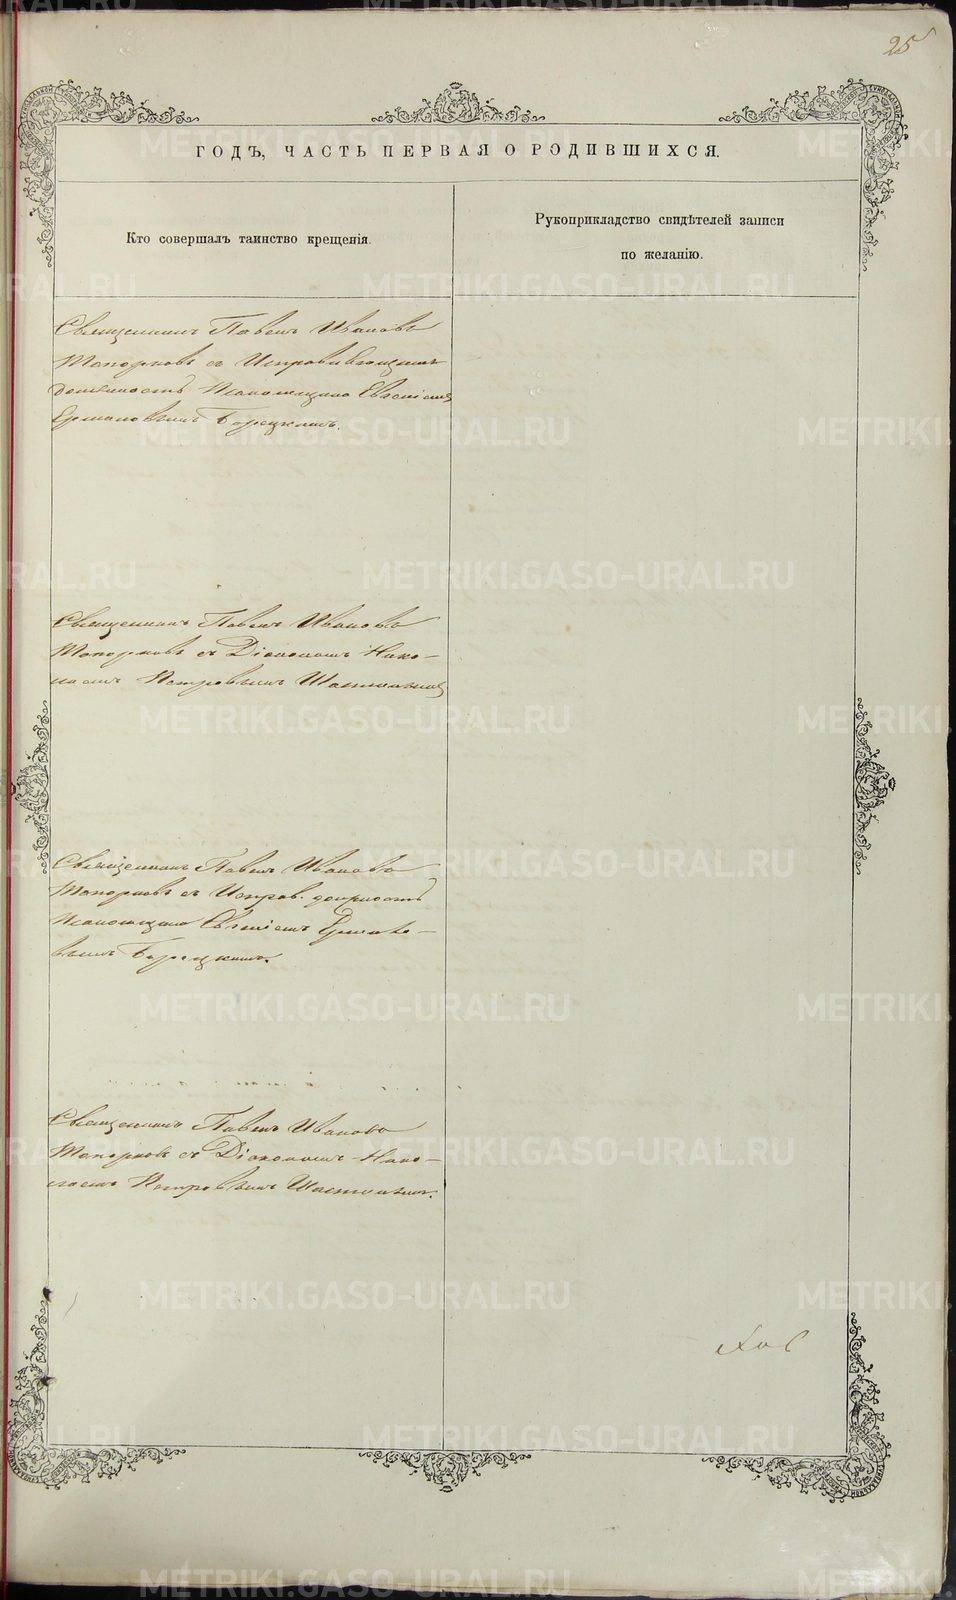 25
ГОДЪ, ЧАСТЬ ПЕРВАЯ О РОДИВШИХСЯ.
Кто совершалъ таинство крещенія.
Рукоприкладство свидѣтелей записи
по желанію.
Священникъ Павелъ Ивановъ
Топорковъ съ Исправляющимъ
должность Псаломщика Евгеніемъ
Ермиловымъ Борецкимъ.
Священникъ Павелъ Ивановъ
Топорковъ съ Діакономъ Нико-
лаемъ Петровымъ
Священникъ Павелъ Ивановъ
Топорковъ съ Исправ. должность
Псаломщика Евгеніемъ Ермило-
вымъ Борецкимъ.
Священникъ Павелъ Ивановъ
Топорковъ съ Діакономъ Нико-
лаемъ Петровымъ
METRIKI.GASO-URAL.RU